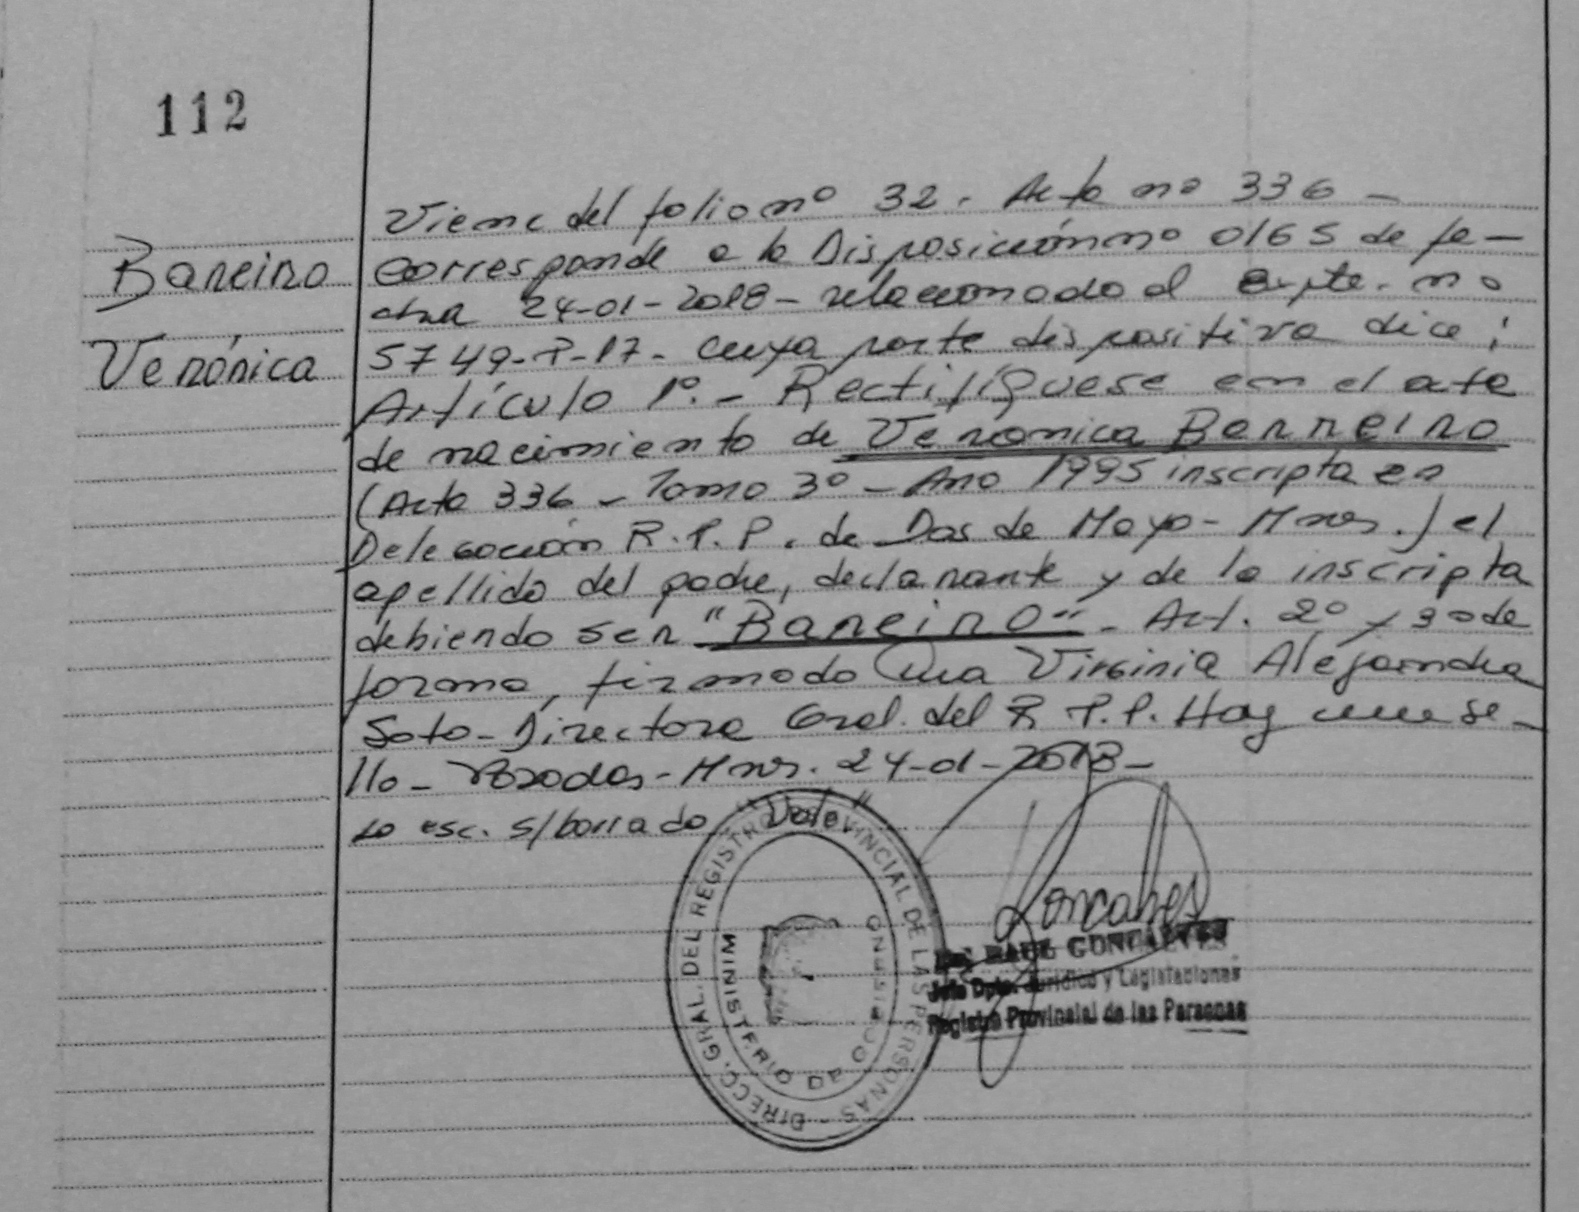 112
Bareiro
Verónica
Viene del folio nº 32. Acta nº 336 -
corresponde a la Disposición nº 0165 de fe-
cha 24-01-2018 - relacionado al expte. nº
5749-P-17- cuya parte dispositiva dice:
Artículo 1º.- Rectifíquese en el acta
de nacimiento de Veronica Barreiro
(Acta 336 - Tomo 3º - Año 1995 inscripta en
Delegación R.P.P. de Dos de Mayo - Mnes.) el
apellido del padre, declarante y de la inscripta
debiendo ser "Bareiro" - Art. 2º y 3º de
forma, firmado Dra Virginia Alejandra
Soto - Directora Gral. del R.P.P. Hay un se-
llo - Posadas - Mnes. 24-01-2018 -
Lo esc. s/borrado "Vale"
DIRECC. GRAL. DEL REGISTRO PROVINCIAL DE LAS PERSONAS
MINISTERIO DE GOBIERNO
RAUL GONCALVES
Jefe Dpto. Jurídico y Legislaciones
Registro Provincial de las Personas